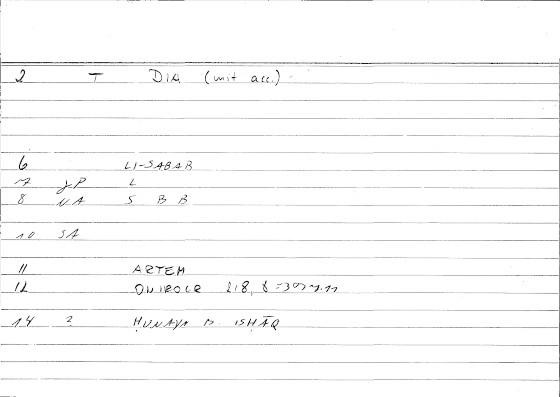 2 T DIA (mit acc.)
6 LI-SABAB
7 γP L
8 NA S B B
10 SA
11 ARTEM
12 ONIROCR 218, 8
14 ? ḤUNAYN B. ISḤĀQ